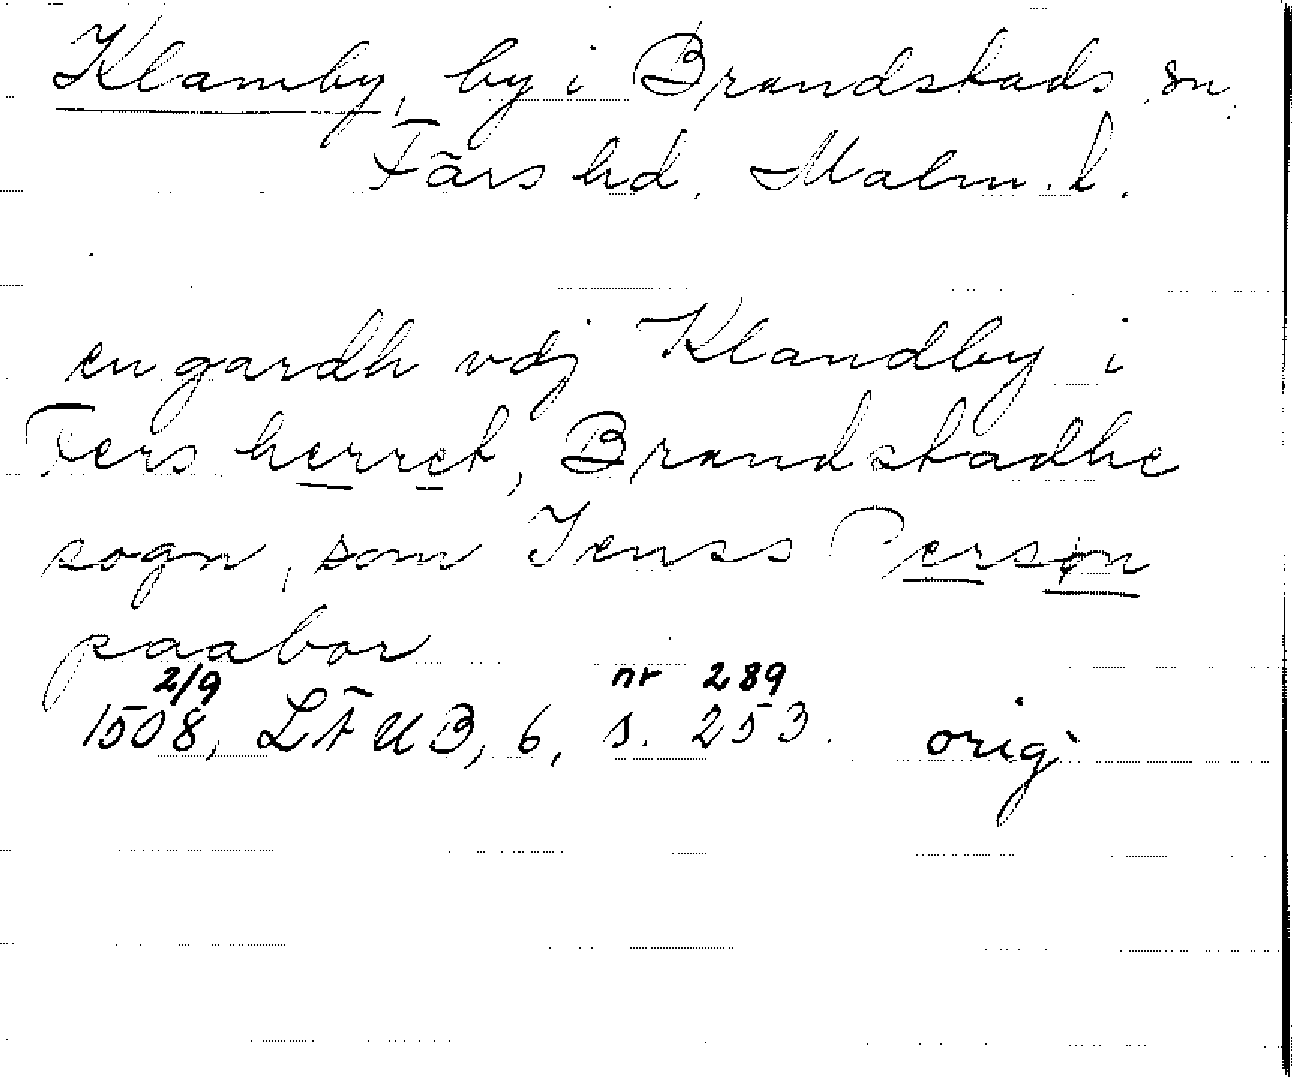 Klamby, by i Brandstads sn,
Färs hd, Malm. l.
en gardh vdj Klandby i
Fers herret, Brandstadhe
sogn, som Jenss Persøn
paabor
2/9 nr 289
1508, LÄUB, 6, s. 253. orig